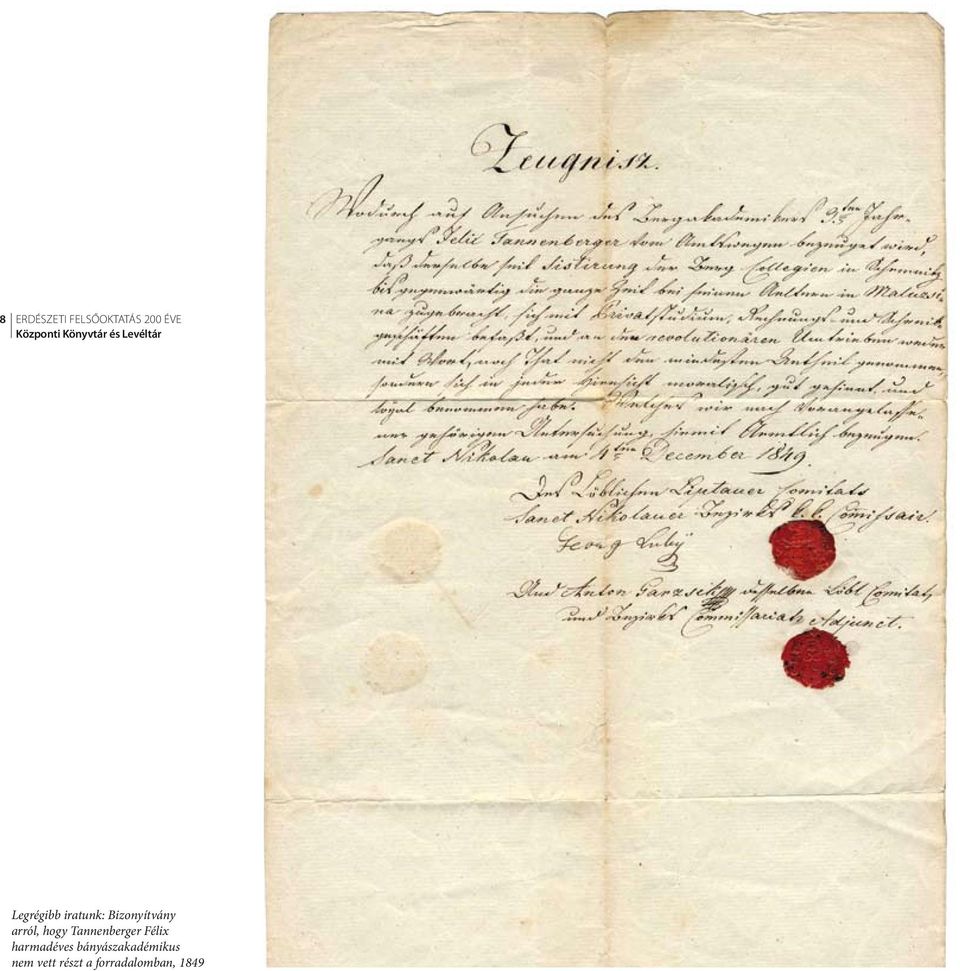 8 ERDÉSZETI FELSŐOKTATÁS 200 ÉVE
Központi Könyvtár és Levéltár
Zeugnisz.
Wodurch auf Ansuchen des Bergakademikers 3ten Jahr-
gangs Felix Tannenberger vom Amtswegen bezeuget wird,
daß derselbe seit Sistirung der Berg Collegien in Schemnitz
bis gegenwärtig die ganze Zeit bei seinen Aeltern in Maluzsi-
na zugebracht, sich mit Privatstudium, Rechnungs- und Schreib-
geschäften befaßt, und an den revolutionären Umtrieben weder
mit Wort, noch That nicht den mindesten Antheil genommen,
sondern sich in jeder Hiensicht moralisch, gut gesinnt, und
loyal benommen habe. Welches wir nach Vorangelasse-
ner gehörigen Untersuchung hiemit Aemtlich bezeugen.
Sanct Nikolau am 4ten December 1849.
Des Löblichen Liptauer Comitats
Sanct Nikolauer Bezirks k.k. Commissair.
Georg Luby
Und Anton Ganzsik desselben Löbl Comitats
und Bezirks Commissariats Adjunct.
Legrégibb iratunk: Bizonyítvány
arról, hogy Tannenberger Félix
harmadéves bányászakadémikus
nem vett részt a forradalomban, 1849